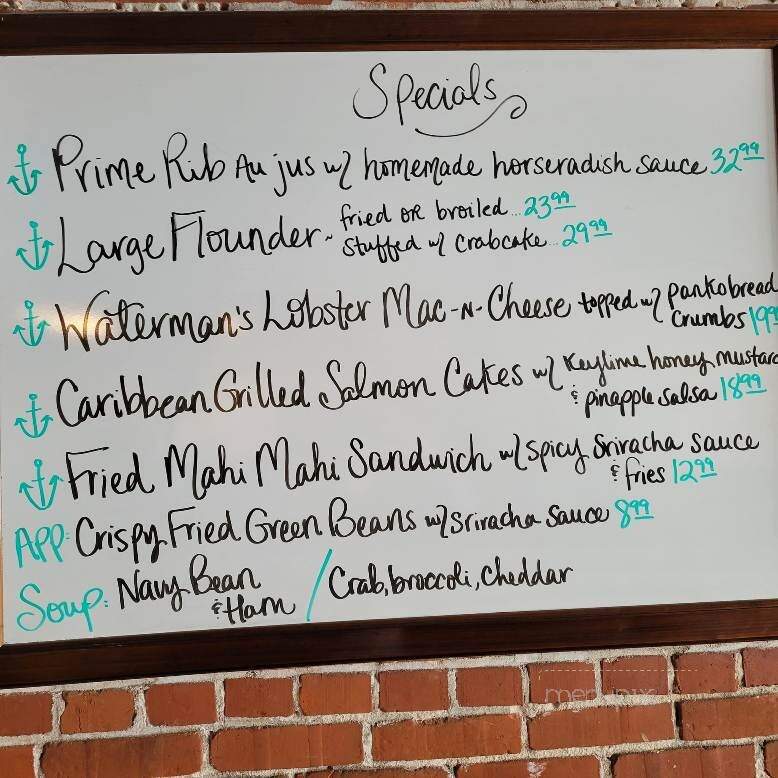 Specials
Prime Rib Au jus w/ homemade horseradish sauce 32⁹⁹
Large Flounder ~ fried or broiled... 23⁹⁹
stuffed w/ crabcake... 29⁹⁹
Waterman's Lobster Mac-N-Cheese topped w/ panko bread
crumbs 19⁹⁹
Caribbean Grilled Salmon Cakes w/ Keylime honey mustard
& pinapple salsa 18⁹⁹
Fried Mahi Mahi Sandwich w/ spicy Sriracha sauce
& fries 12⁹⁹
APP: Crispy Fried Green Beans w/ sriracha sauce 8⁹⁹
Soup: Navy Bean & Ham / Crab, broccoli, cheddar
menupix